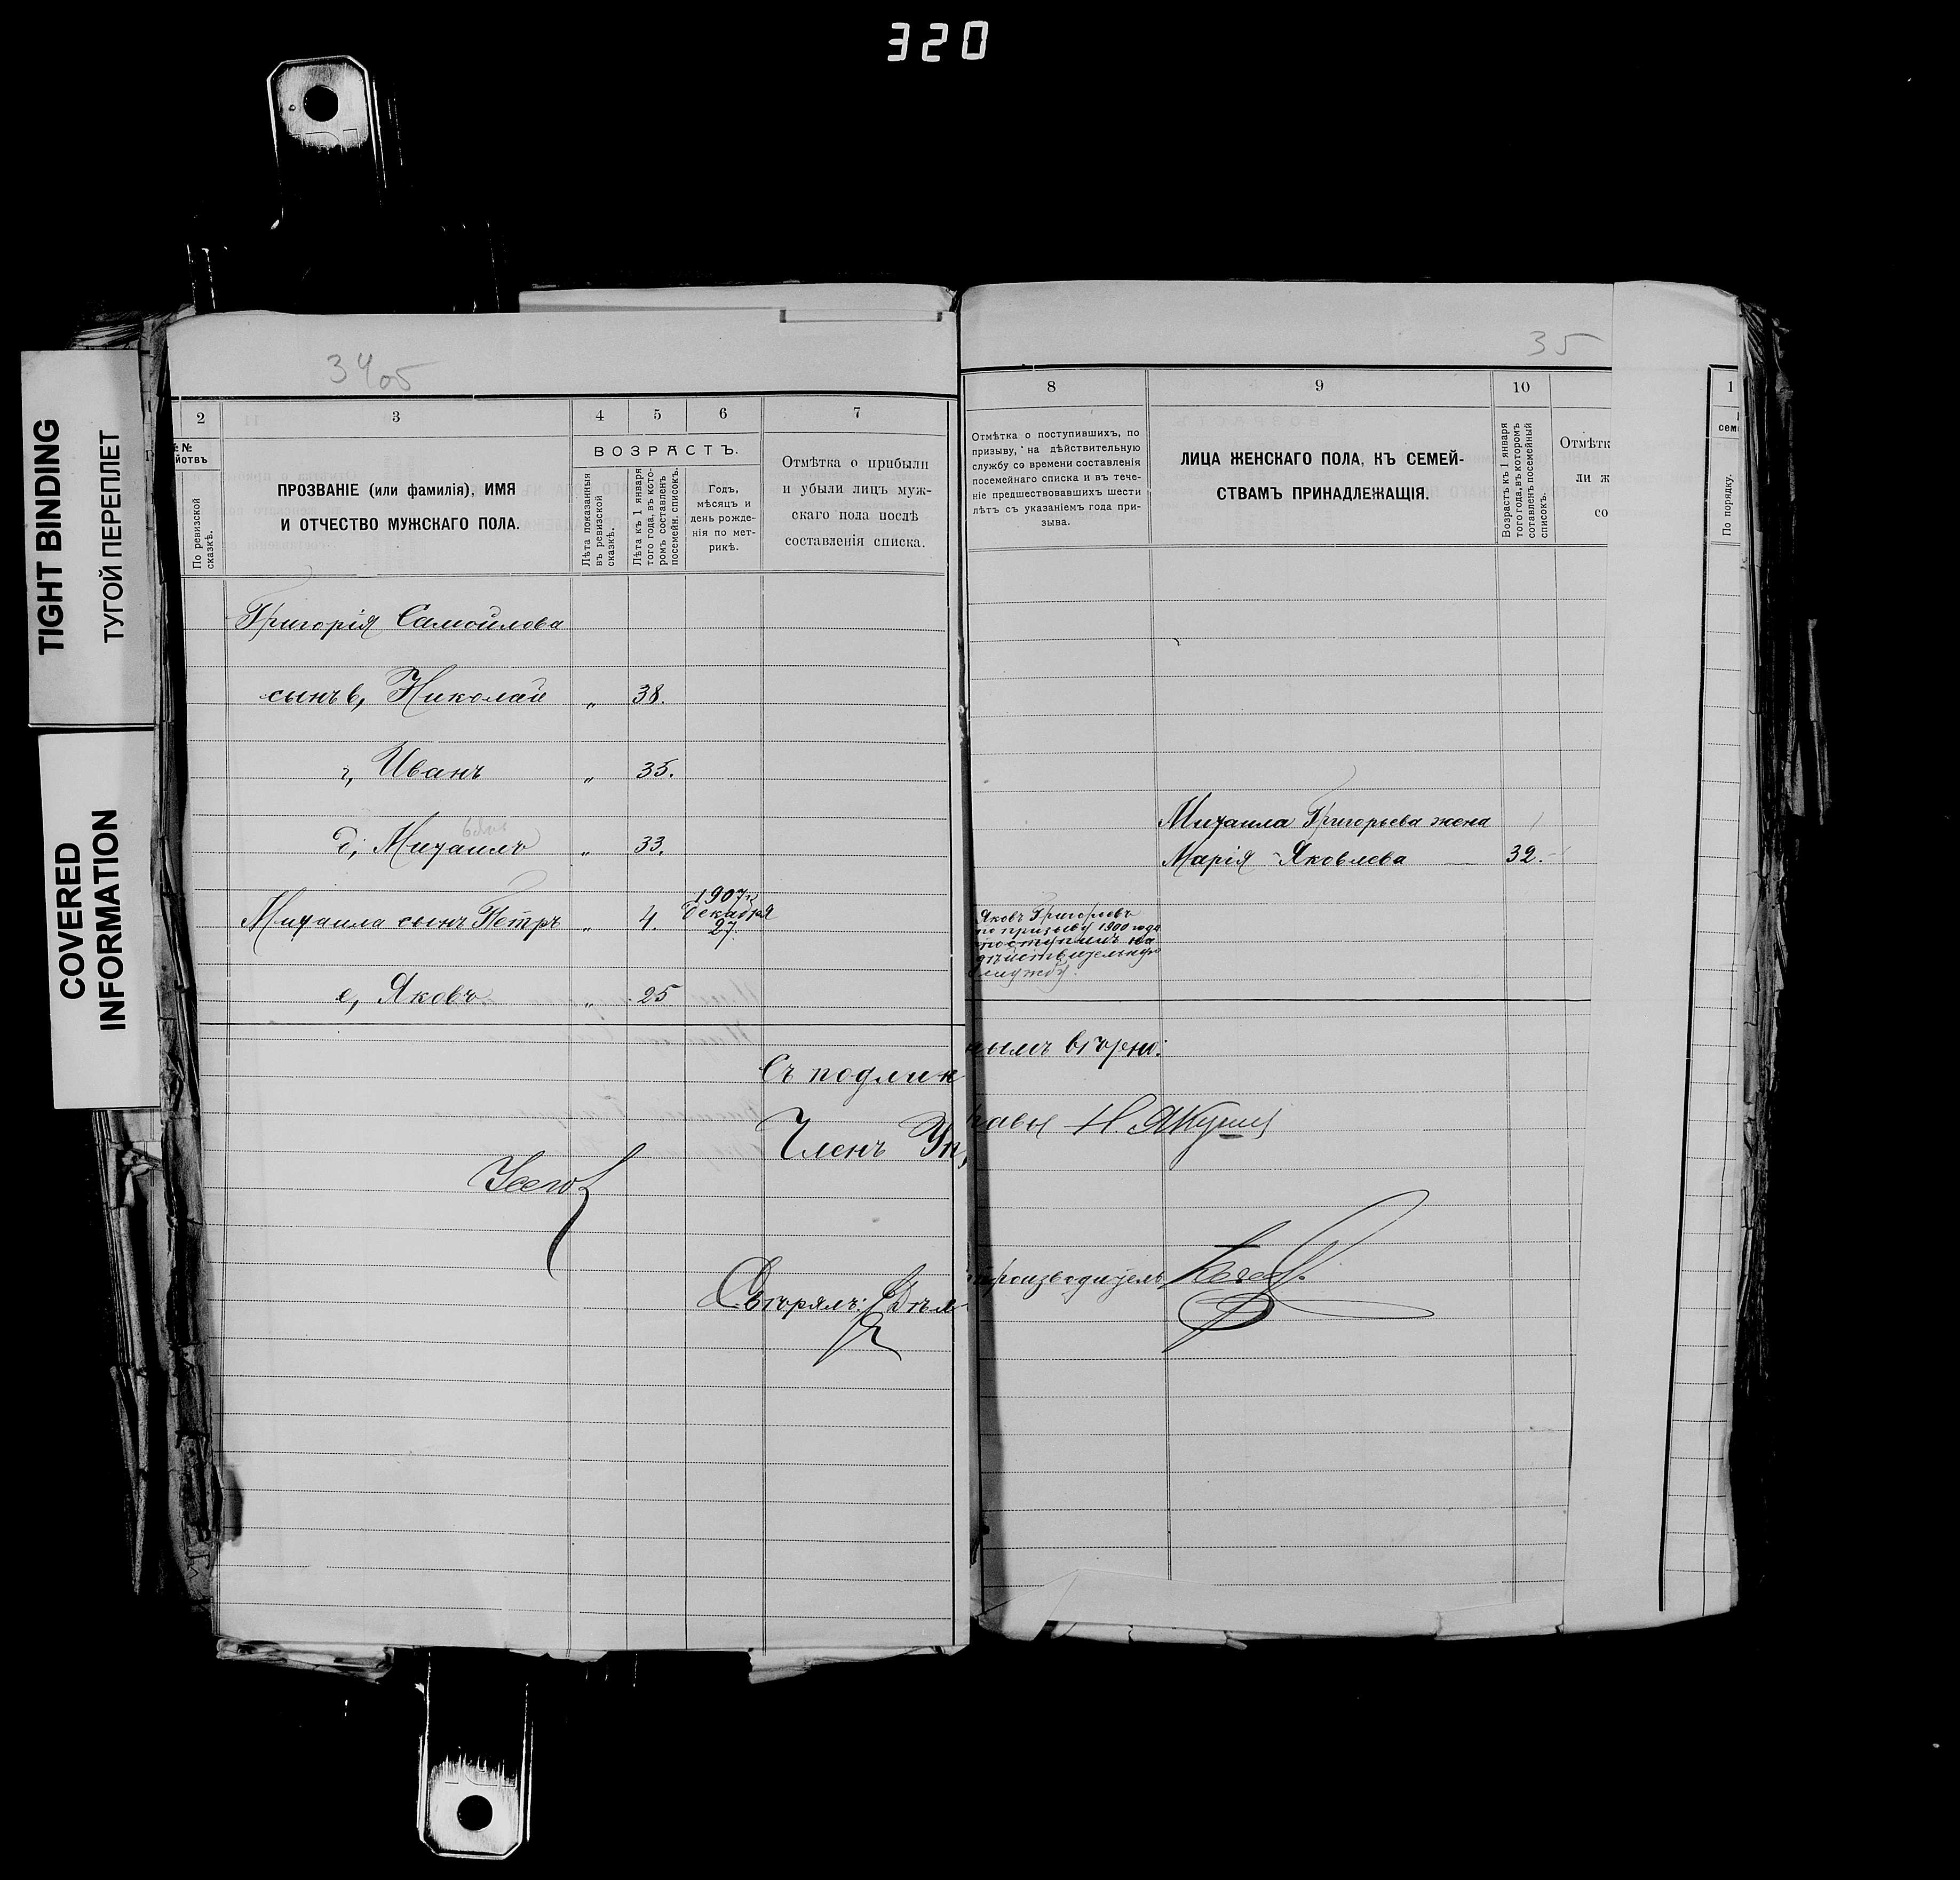 320
TIGHT BINDING
ТУГОЙ ПЕРЕПЛЕТ
COVERED
INFORMATION
34об
2
3
4
5
6
7
№ №
йствъ
По ревизской
сказкѣ.
ПРОЗВАНІЕ (или фамилія), ИМЯ
И ОТЧЕСТВО МУЖСКАГО ПОЛА.
ВОЗРАСТЪ.
Лѣта показанныя
въ ревизской
сказкѣ.
Лѣта къ 1 января
того года, въ кото-
ромъ составленъ
посемейн. списокъ.
Годъ,
мѣсяцъ и
день рожде-
нія по мет-
рикѣ.
Отмѣтка о прибыли
и убыли лицъ муж-
скаго пола послѣ
составленія списка.
Григорія Самойлова
сынъ в, Николай „ 38.
г, Иванъ „ 35.
д, Михаилъ „ 33.
1907 г.
Декабря
27.
Михаила сынъ Петръ „ 4.
е, Яковъ „ 25
Съ подлин
Членъ Уп
Свѣрялъ: Дѣл
35
8
9
10
1
Отмѣтка о поступившихъ, по
призыву, на дѣйствительную
службу со времени составленія
посемейнаго списка и въ тече-
ніе предшествовавшихъ шести
лѣтъ съ указаніемъ года при-
зыва.
ЛИЦА ЖЕНСКАГО ПОЛА, КЪ СЕМЕЙ-
СТВАМЪ ПРИНАДЛЕЖАЩІЯ.
Возрастъ къ 1 января
того года, въ которомъ
составленъ посемейный
списокъ.
Отмѣтк
ли ж
со
сем
По порядку.
Михаила Григорьева жена
Марія Яковлева 32.
Яковъ Григорьевъ
по призыву 1900 года
поступилъ на
дѣйствительную
службу.
нымъ вѣрно:
равы Н.
производитель